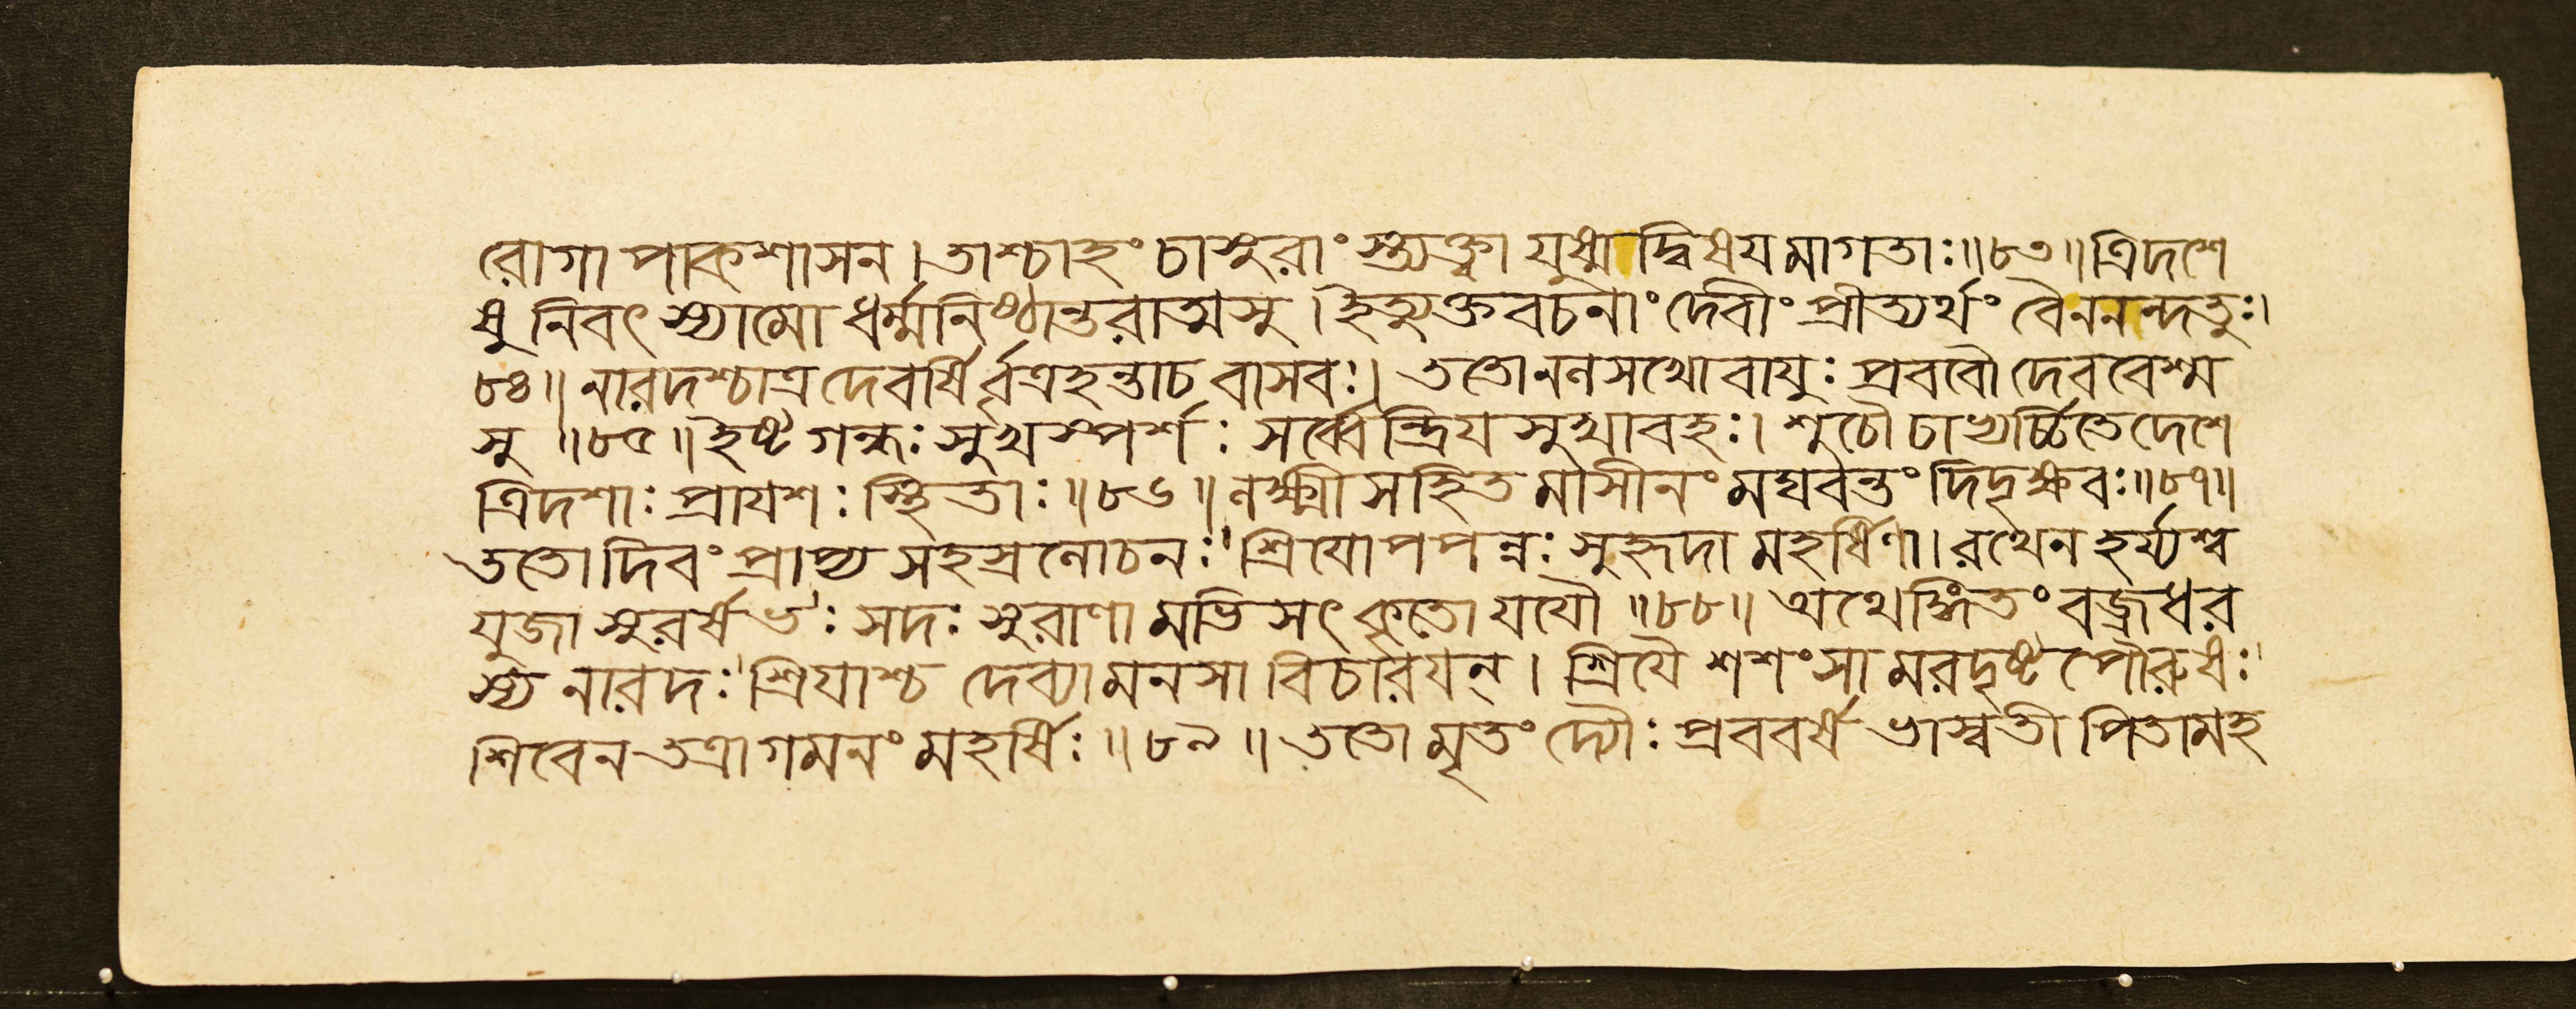 রোগা পাকশাসন । তাশ্চাহং চাসুরাং স্ত্যক্ত্বা যুষ্মাদ্বিষয মাগতাঃ ॥ ৮৩ ॥ ত্রিদশে
ষু নিবৎ স্যামো ধর্ম্মনিষ্ঠান্তরাত্মসু । ইত্যুক্তবচনাং দেবীং প্রীত্যর্থং বৈননন্দতুঃ ।
৮৪ ॥ নারদশ্চাত্র দেবর্ষি র্বৃত্রহন্তাচ বাসবঃ । ততোননসখো বাযুঃ প্রববৌ দেববেশ্ম
সু ॥ ৮৫ ॥ ইষ্ট গন্ধঃ সুখস্পর্শঃ সর্ব্বেন্দ্রিয সুখাবহঃ । শুচৌ চাভ্যর্চ্চিতে দেশে
ত্রিদশাঃ প্রাযশঃ স্থিতাঃ ॥ ৮৬ ॥ নক্ষ্মী সহিত মাসীনং মঘবন্তং দিদৃক্ষবঃ ॥ ৮৭ ॥
ততো দিবং প্রাপ্য সহস্রনোচনঃ । শ্রিযোপপন্নঃ সুহৃদা মহর্ষিণা । রথেন হর্য্যশ্ব
যুজা সুরর্ষভঃ । সদঃ সুরাণা মভিসৎ কৃতো যযৌ ॥ ৮৮ ॥ অথেঙ্গিতং বজ্রধর
স্য নারদঃ । শ্রিযাশ্চ দেব্যা মনসা বিচারযন্ । শ্রিযৈ শশংসা মরদৃষ্ট পৌরুষঃ ।
শিবেন তত্রাগমনং মহর্ষিঃ ॥ ৮৯ ॥ ততো মৃতং দ্যৌঃ প্রববর্ষ ভাস্বতী পিতামহ